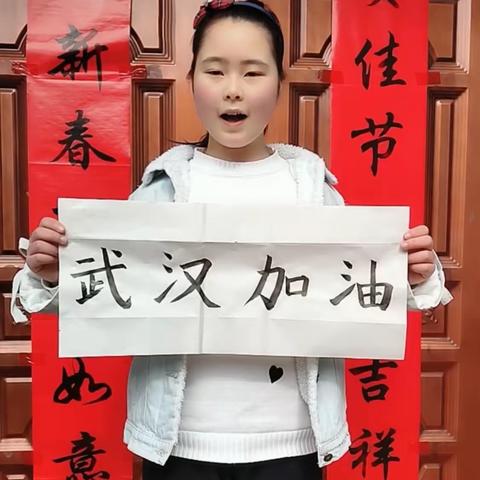 武汉加油
佳节
吉祥
新春
如意